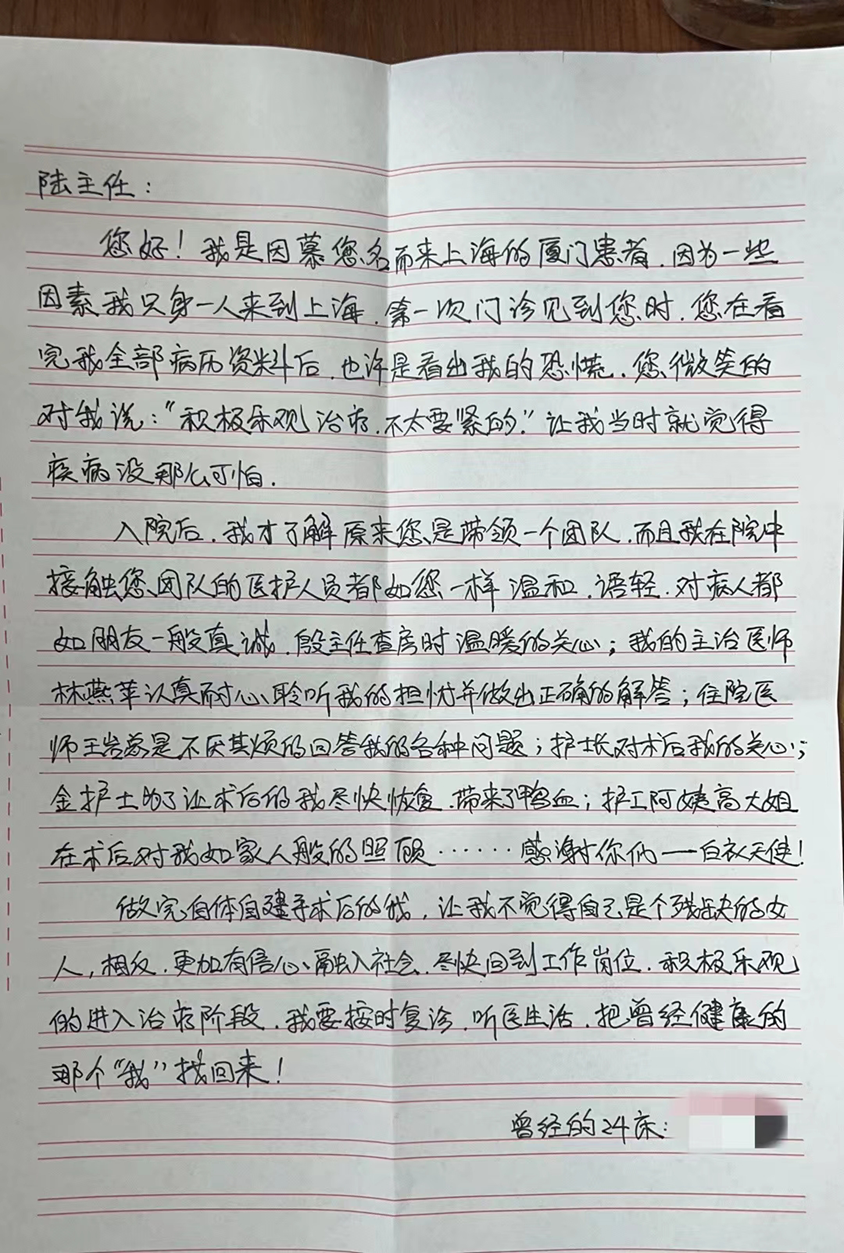 陆主任：
您好！我是因慕您名而来上海的厦门患者，因为一些
因素我只身一人来到上海，第一次门诊见到您时，您在看
完我全部病历资料后，也许是看出我的恐慌，您微笑的
对我说：“积极乐观治疗，不太要紧的。”让我当时就觉得
疾病没那么可怕．
入院后，我才了解原来您是带领一个团队，而且我在院中
接触您团队的医护人员都如您一样温和、语轻，对病人都
如朋友一般真诚，殷主任查房时温暖的关心；我的主治医师
林燕苹认真耐心聆听我的担忧并做出正确的解答；住院医
师王岩总是不厌其烦的回答我的各种问题；护士长对术后我的关心；
金护士为了让术后的我尽快恢复，带来了鸭血；护工阿姨高大姐
在术后对我如家人般的照顾……感谢你们—白衣天使！
做完自体自建手术后的我，让我不觉得自己是个残缺的女
人，相反，更加有信心融入社会，尽快回到工作岗位，积极乐观
的进入治疗阶段，我要按时复诊，听医生话，把曾经健康的
那个“我”找回来！
曾经的24床：